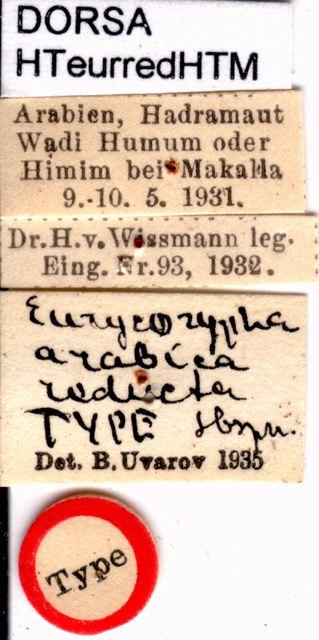 DORSA
HTeurredHTM
Arabien, Hadramaut
Wadi Humum oder
Himim bei Makalla
9.-10. 5. 1931.
Dr.H.v.Wissmann leg.
Eing. Nr.93, 1932.
Eurycorypha
arabica
reducta
TYPE
Det. B. Uvarov 1935
Type